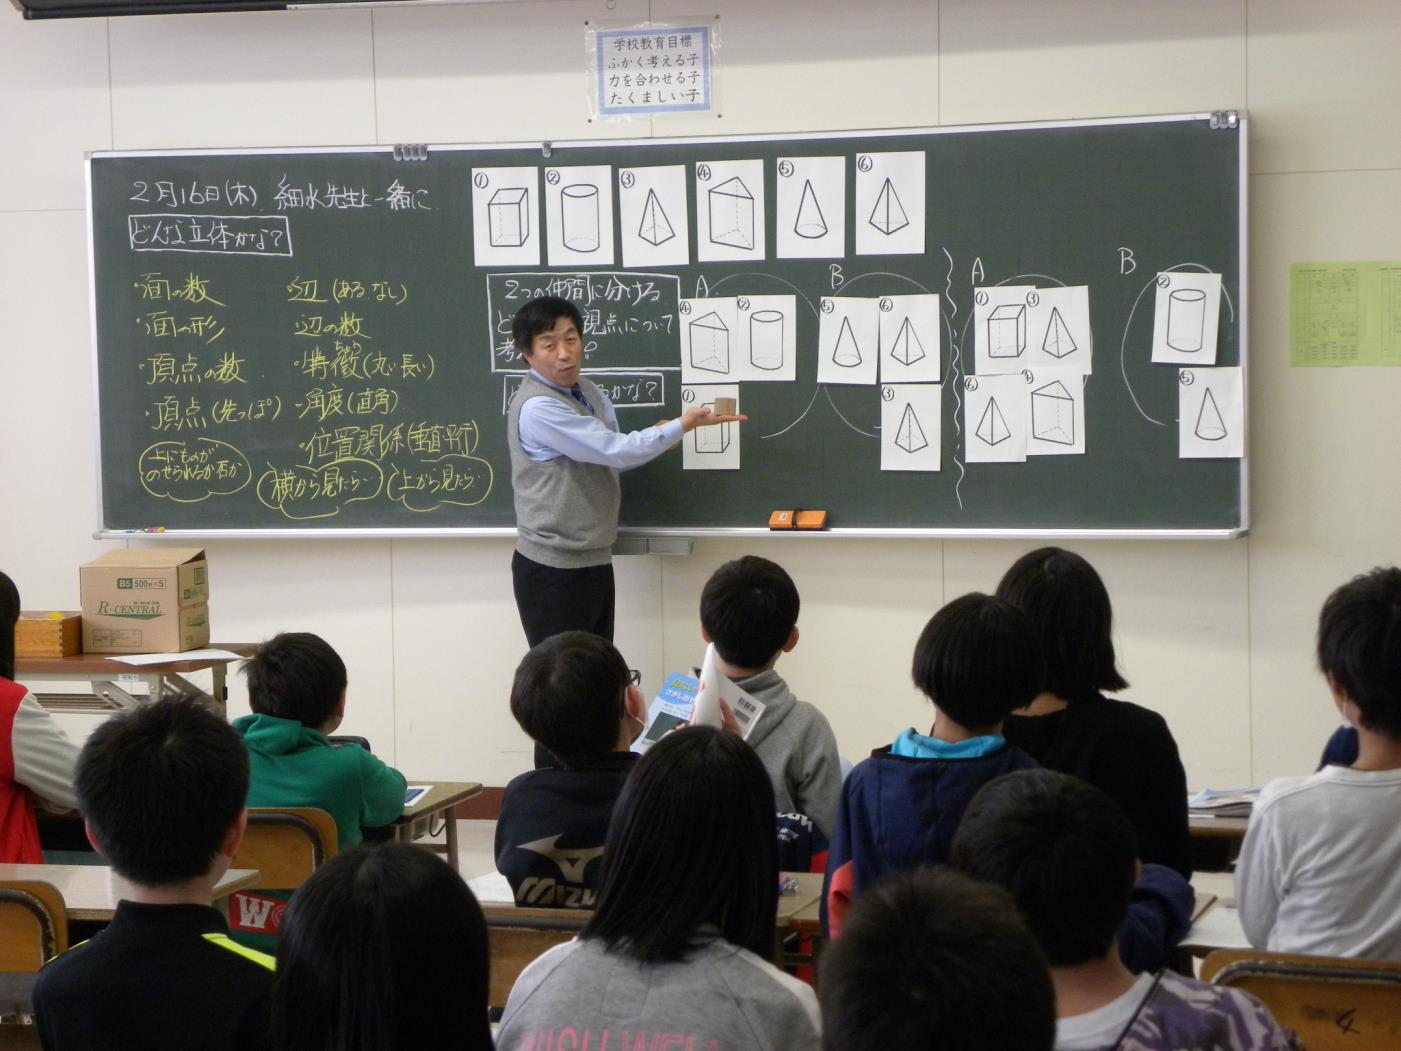 学校教育目標
ふかく考える子
力を合わせる子
たくましい子
2月16日(木) 細水先生と一緒に
どんな立体かな?
・面の数
・面の形
・頂点の数
・頂点(先っぽ)
上にものが
のせられるか否か
・辺(ある、なし)
・辺の数
・特徴(丸い、長い)
・角度(直角)
・位置関係(垂直、平行)
横から見たら…
上から見たら…
① ② ③ ④ ⑤ ⑥
2つの仲間に分ける
視点について
考え
かな?
A
④ ②
①
B
⑤ ⑥
③
A
① ③
⑥ ④
B
②
⑤
B5 500枚×5
R-CENTRAL
MIZUNO
W